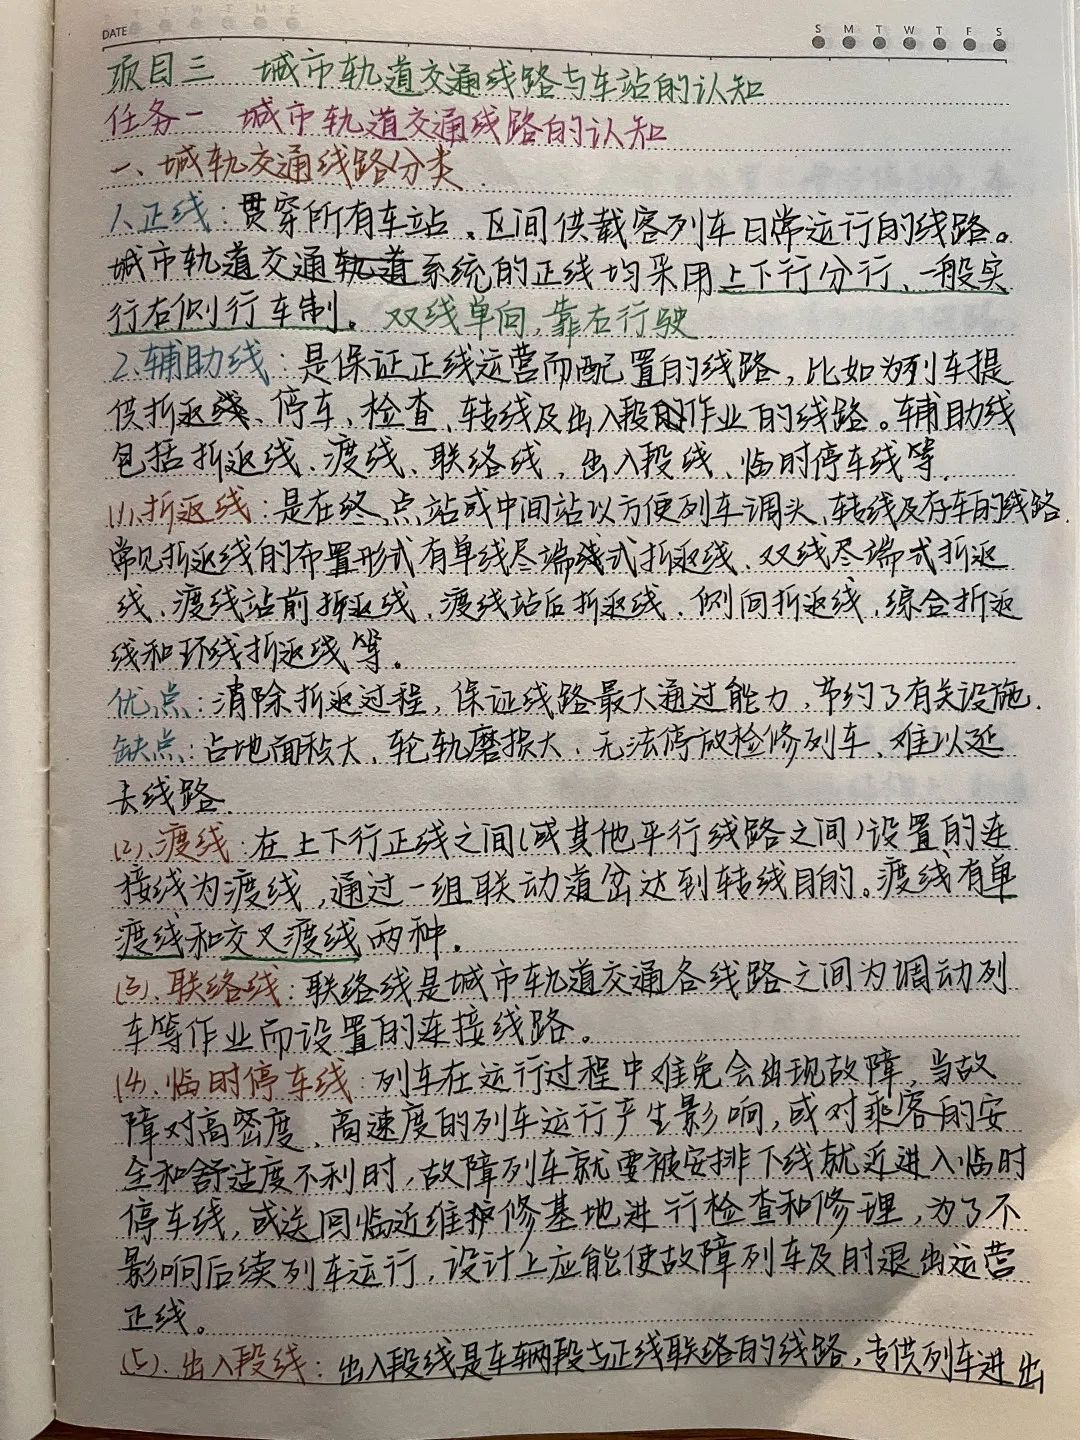 DATE
S M T W T F S
项目三 城市轨道交通线路与车站的认知
任务一 城市轨道交通线路的认知
一、城轨交通线路分类
1、正线：贯穿所有车站、区间供载客列车日常运行的线路。
城市轨道交通轨道系统的正线均采用上下行分行、一般实
行右侧行车制。双线单向，靠右行驶
2、辅助线：是保证正线运营而配置的线路，比如为列车提
供折返线、停车、检查、转线及出入段的作业的线路。辅助线
包括折返线、渡线、联络线、出入段线、临时停车线等
(1)、折返线：是在终点站或中间站以方便列车调头、转线及存车的线路
常见折返线的布置形式有单线尽端线式折返线、双线尽端式折返
线、渡线站前折返线、渡线站后折返线、侧间折返线、综合折返
线和环线折返线等。
优点：消除折返过程，保证线路最大通过能力，节约了有关设施.
缺点：占地面积大、轮轨磨损大、无法停放检修列车、难以延
长线路.
(2)、渡线：在上下行正线之间(或其他平行线路之间)设置的连
接线为渡线，通过一组联动道岔达到转线目的。渡线有单
渡线和交叉渡线两种.
(3)、联络线：联络线是城市轨道交通各线路之间为调动列
车等作业而设置的连接线路。
(4)、临时停车线：列车在运行过程中难免会出现故障，当故
障对高密度、高速度的列车运行产生影响，或对乘客的安
全和舒适度不利时，故障列车就要被安排下线就近进入临时
停车线，或送回临近维护修基地进行检查和修理，为了不
影响后续列车运行，设计上应能使故障列车及时退出运营
正线。
(5)、出入段线：出入段线是车辆段与正线联络的线路，专供列车进出